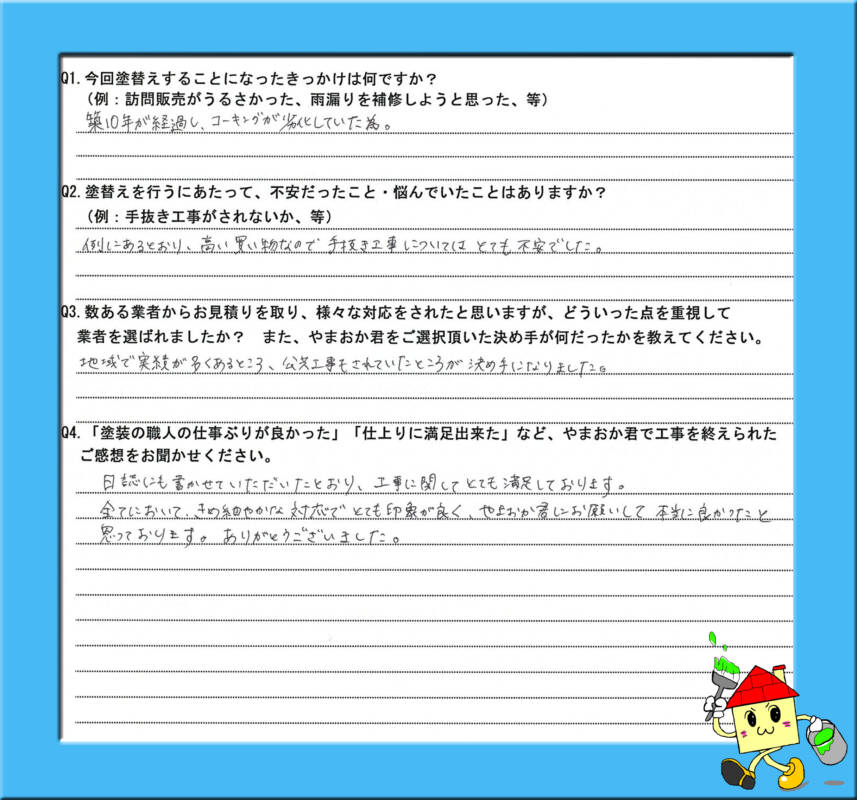 Q1. 今回塗替えすることになったきっかけは何ですか？
（例：訪問販売がうるさかった、雨漏りを補修しようと思った、等）
築10年が経過し、コーキングが劣化していた為。
Q2. 塗替えを行うにあたって、不安だったこと・悩んでいたことはありますか？
（例：手抜き工事がされないか、等）
例にあるとおり、高い買い物なので手抜き工事についてはとても不安でした。
Q3. 数ある業者からお見積りを取り、様々な対応をされたと思いますが、どういった点を重視して
業者を選ばれましたか？　また、やまおか君をご選択頂いた決め手が何だったかを教えてください。
地域で実績が多くあるところ、公共工事もされていたところが決め手になりました。
Q4. 「塗装の職人の仕事ぶりが良かった」「仕上りに満足出来た」など、やまおか君で工事を終えられた
ご感想をお聞かせください。
日誌にも書かせていただいたとおり、工事に関してとても満足しております。
全てにおいて、きめ細やかな対応でとても印象が良く、やまおか君にお願いして本当に良かったと
思っております。ありがとうございました。